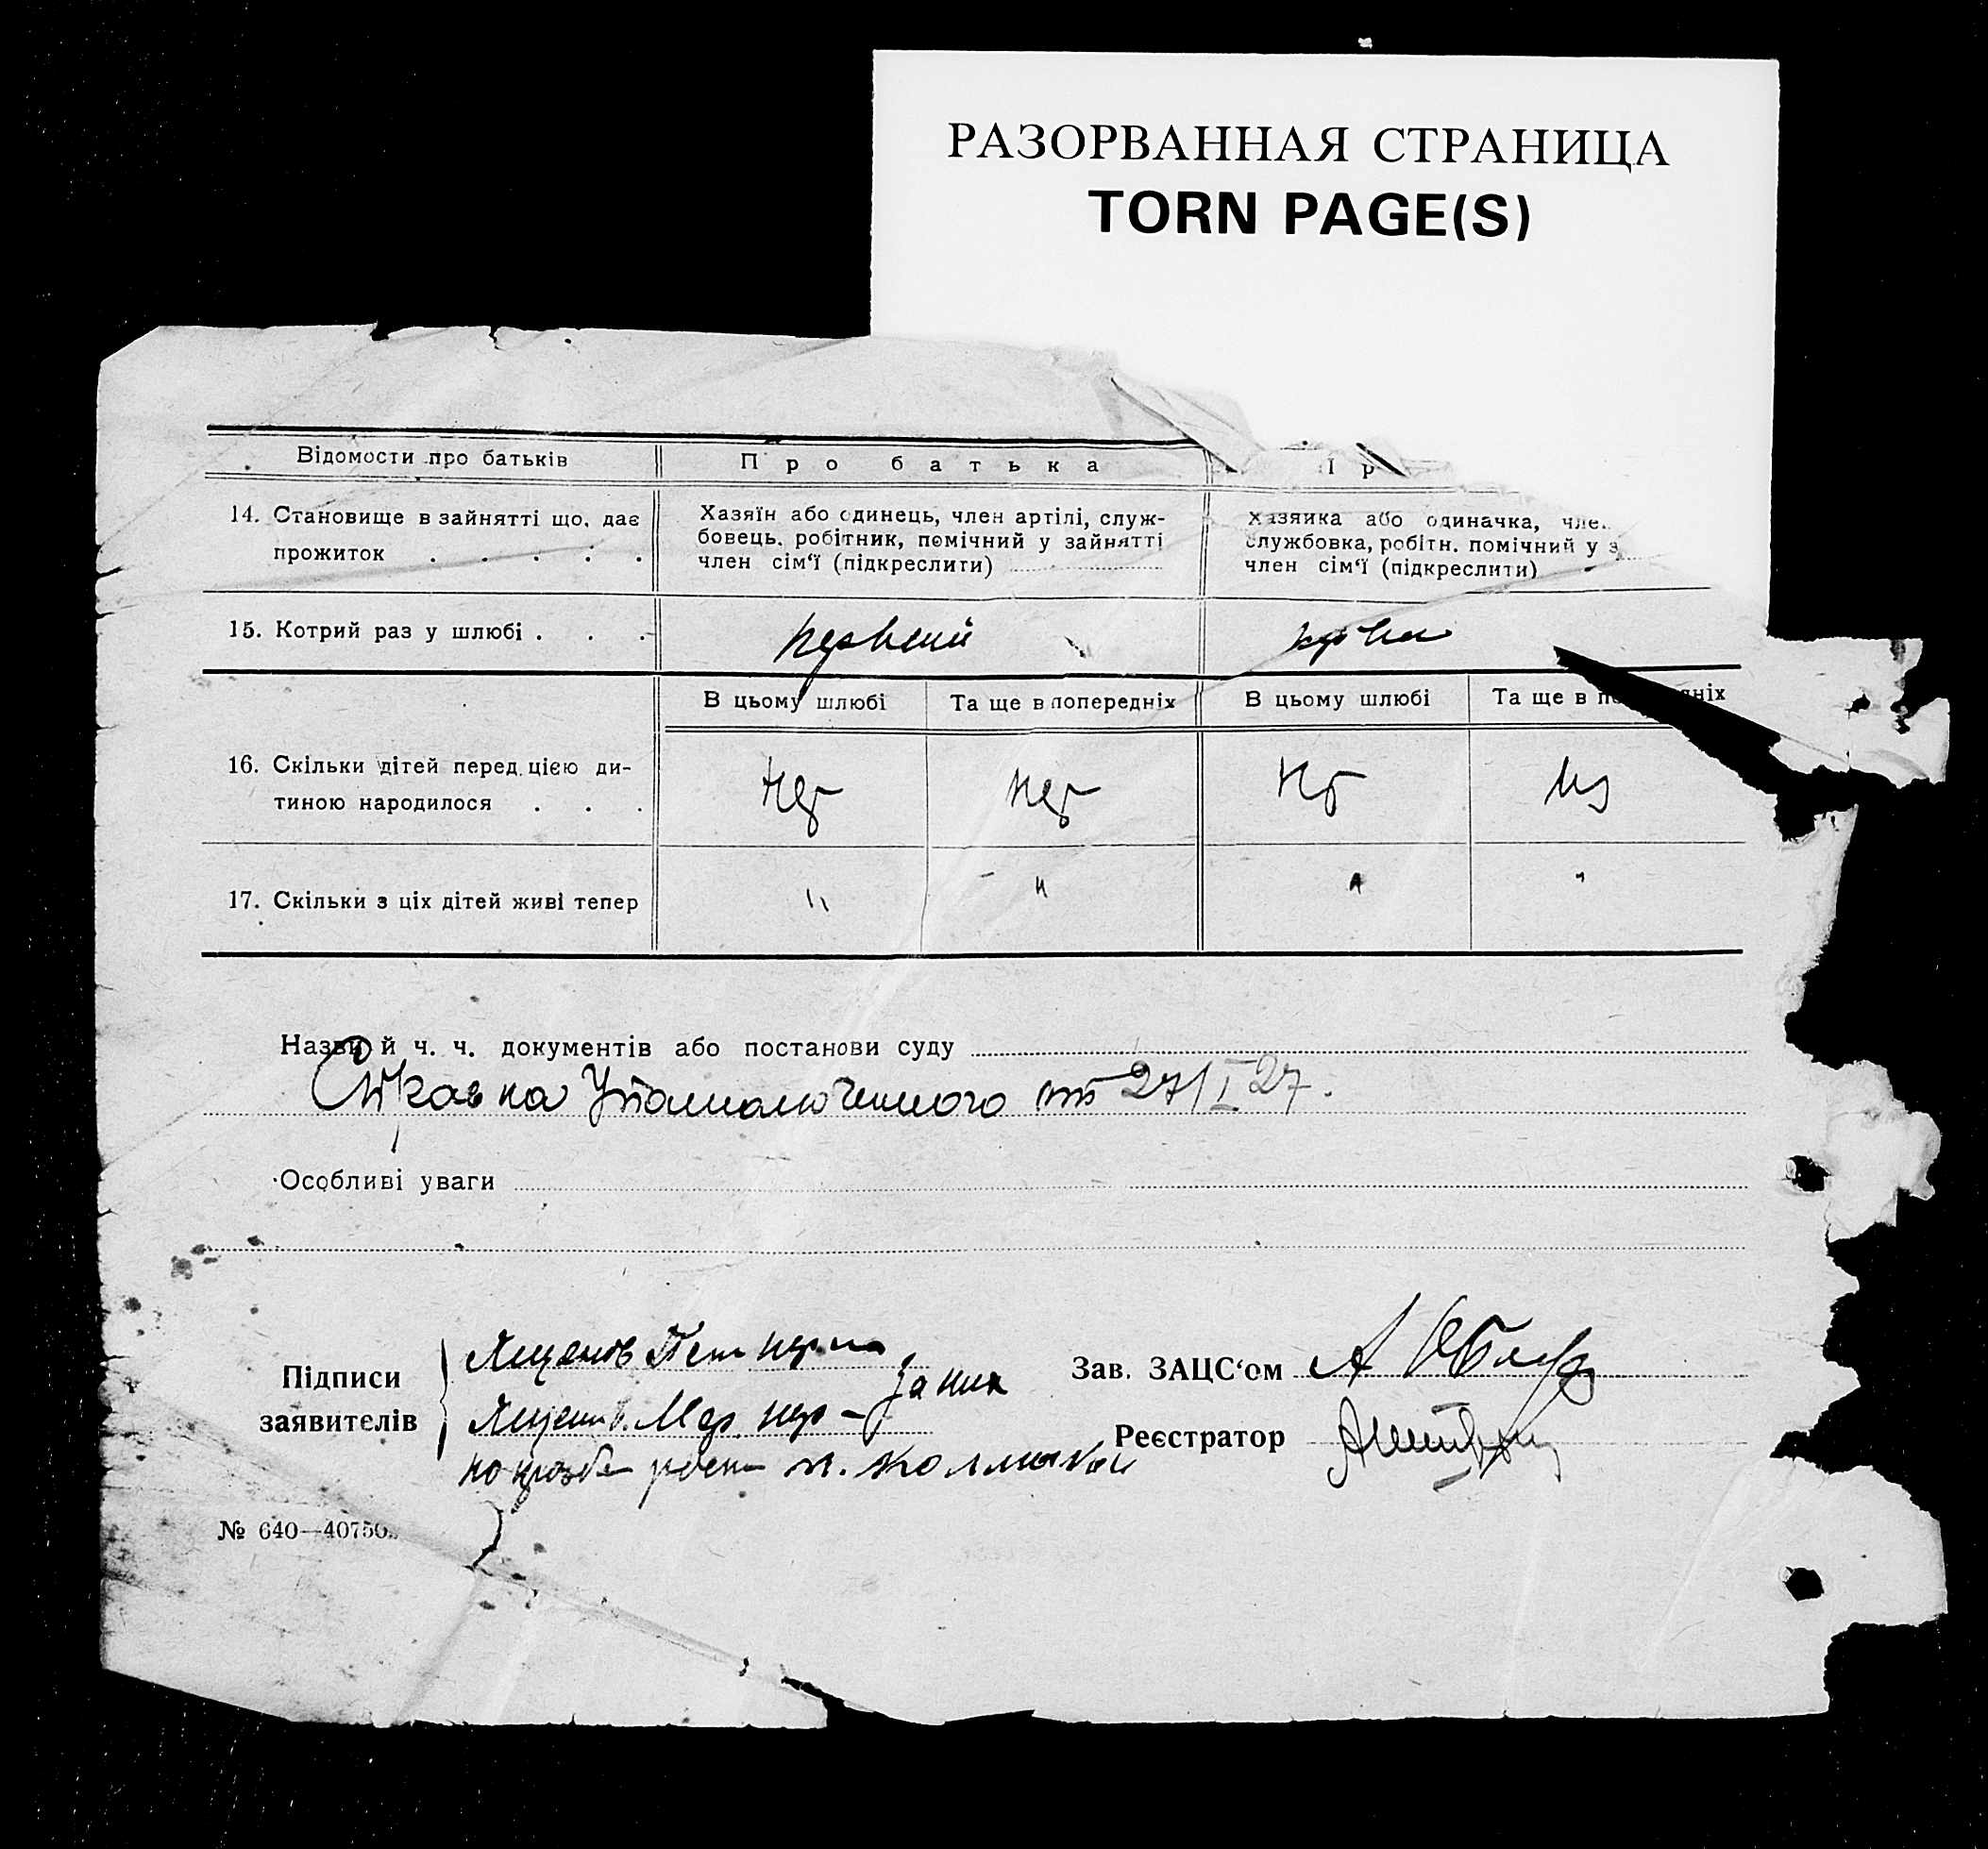 РАЗОРВАННАЯ СТРАНИЦА
TORN PAGE(S)
Відомости про батьків
Про батька
14. Становище в зайнятті що, дає
прожиток . . . . .
Хазяїн або одинець, член артілі, служ-
бовець, робітник, помічний у зайнятті
член сім'ї (підкреслити)
Хазяйка або одиначка, член
службовка, робітн. помічний у з
член сім'ї (підкреслити)
15. Котрий раз у шлюбі . . .
первый
В цьому шлюбі
Та ще в попередніх
В цьому шлюбі
Та ще в попередніх
16. Скільки дітей перед цією ди-
тиною народилося . . .
Нет
нет
Нт
17. Скільки з ціх дітей живі тепер
"
"
"
"
Назви й ч. ч. документів або постанови суду
Справка Уполномоченного от 27/I 27.
Особливі уваги
Підписи
заявителів
за них
Зав. ЗАЦС'ом
Реєстратор
№ 640—40750